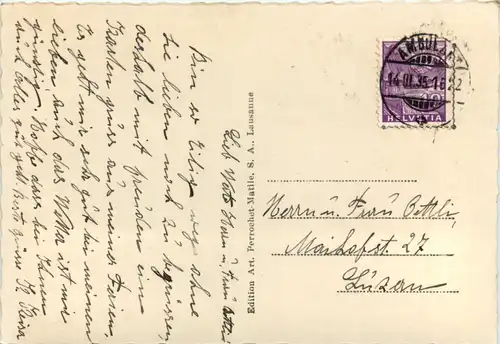 Lieb Werte Herrn u. Frau Oettli
Bin so Eilig weg ohne
Sie lieben noch zu begrüssen,
deshalb mit Freuden ein
Karten gruss aus meinen Ferien.
Es geht mir sehr gut bei meinen
lieben, auch das Wetter ist mir
günstig. Hoffe dass bei Ihnen
Alles gut geht. Best grüsse
Edition Art. Perrochet-Matile, S. A., Lausanne
AMBULANT
14.III.35.-1622
10
HELVETIA
Herrn u. Frau Oettli,
Maihofst. 27
Luzern